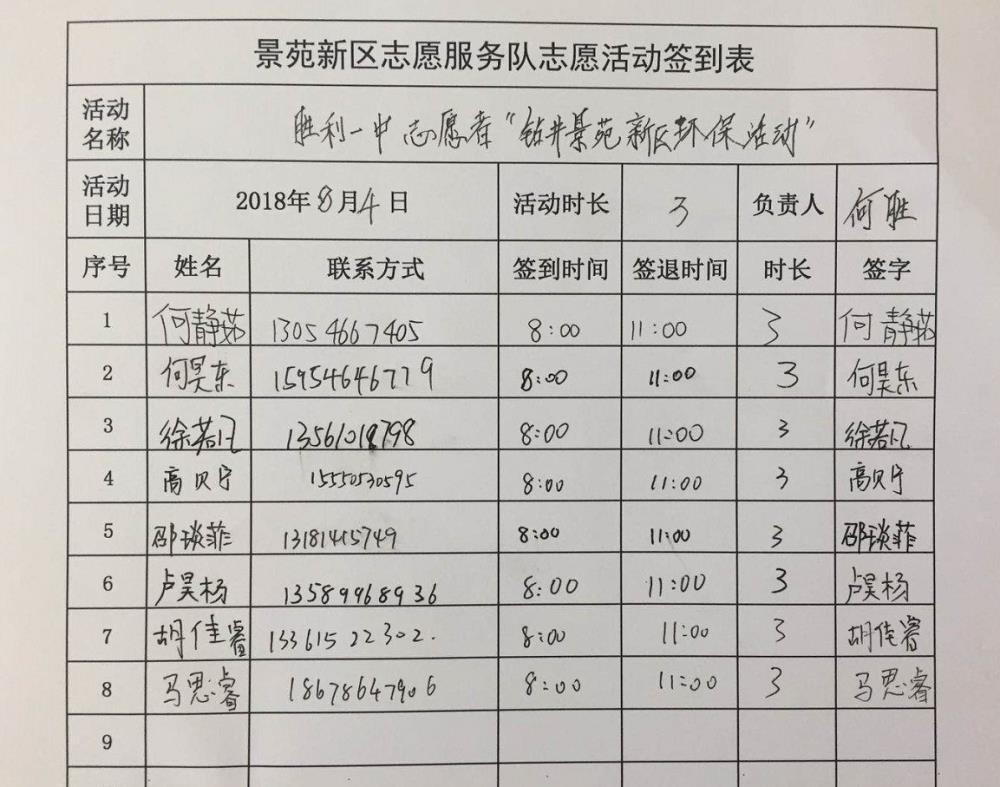 景苑新区志愿服务队志愿活动签到表
活动名称 胜利一中志愿者“钻井景苑新区环保活动”
活动日期 2018年8月4日 活动时长 3 负责人 何胜
序号 姓名 联系方式 签到时间 签退时间 时长 签字
1 何静茹 13054667405 8:00 11:00 3 何静茹
2 何昊东 15954646779 8:00 11:00 3 何昊东
3 徐若凡 13561018798 8:00 11:00 3 徐若凡
4 高贝宁 15550530595 8:00 11:00 3 高贝宁
5 邵琰菲 13181415749 8:00 11:00 3 邵琰菲
6 卢昊杨 13589968936 8:00 11:00 3 卢昊杨
7 胡佳睿 13361522302. 8:00 11:00 3 胡佳睿
8 马思睿 18678647906 8:00 11:00 3 马思睿
9